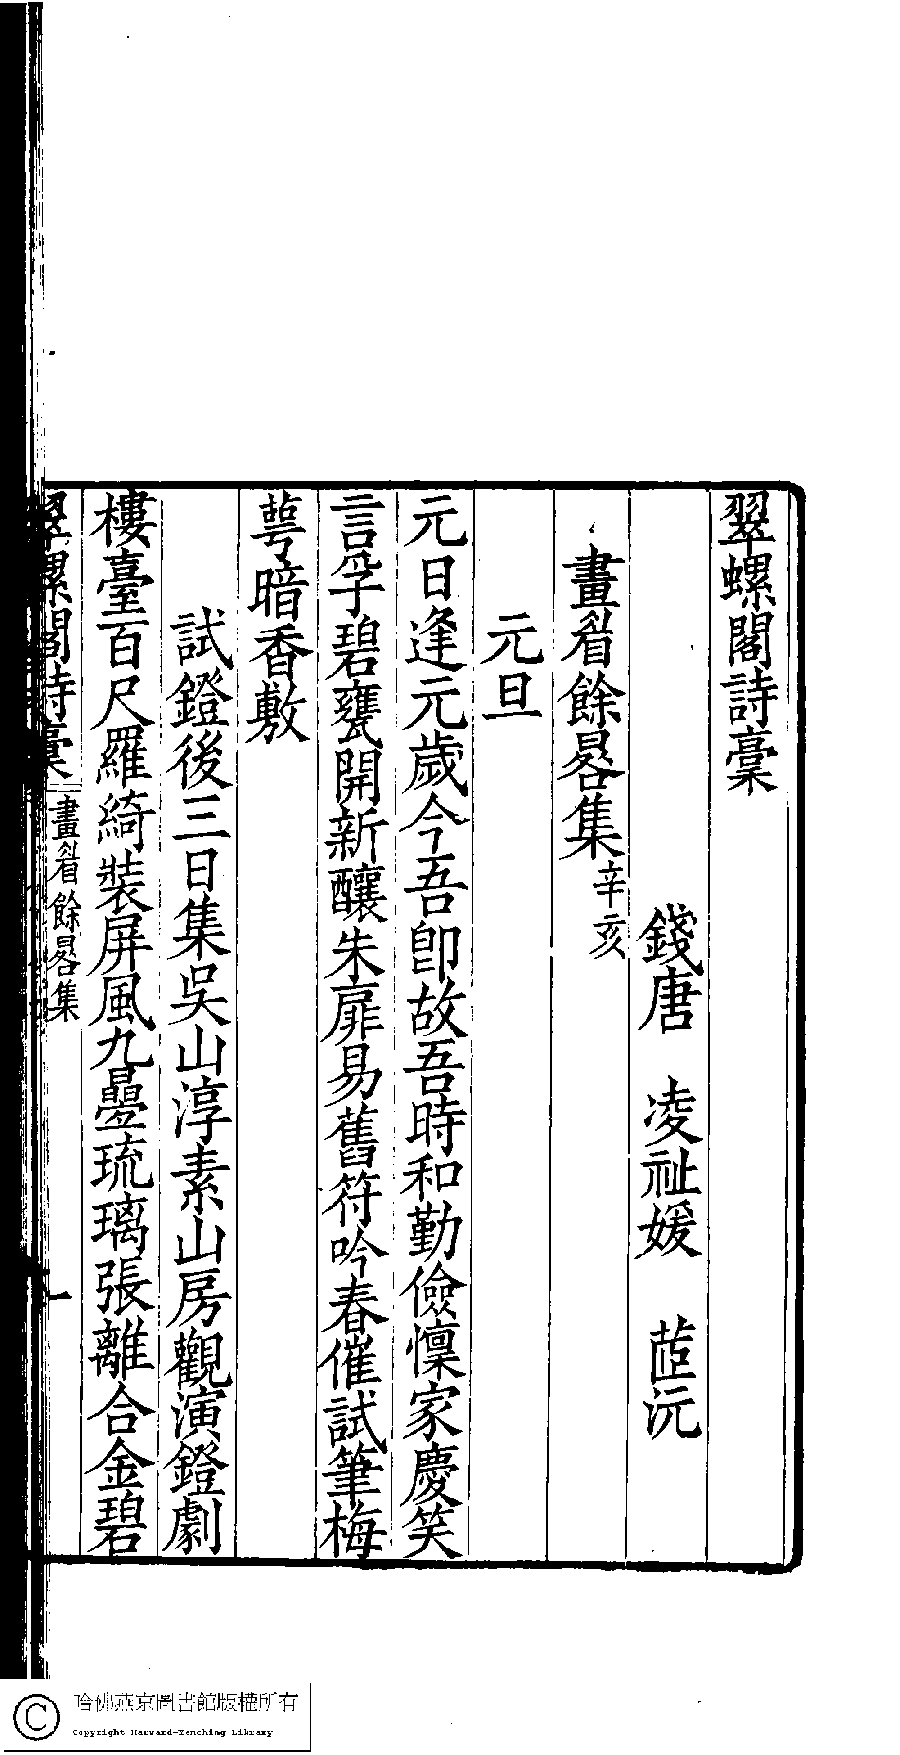 翠螺閣詩稾
錢唐　凌祉媛　茝沅
畫眉餘晷集辛亥
元旦
元日逢元歲今吾卽故吾時和勤儉懍家慶笑
言孚碧甕開新釀朱扉易舊符吟春催試筆梅
萼暗香敷
試鐙後三日集吳山淳素山房觀演鐙劇
樓臺百尺羅綺裝屏風九疊琉璃張離合金碧
翠螺閣詩稾　畫眉餘晷集　一
哈佛燕京圖書館版權所有
Copyright Harvard-Yenching Library